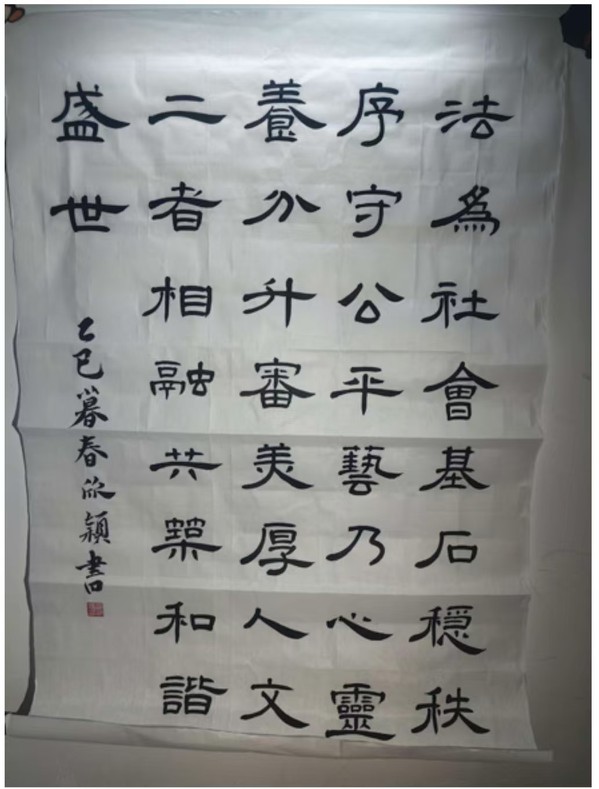 法為社會基石穩秩
序守公平藝乃心靈
養分升審美厚人文
二者相融共築和諧
盛世
乙巳暮春欣穎書